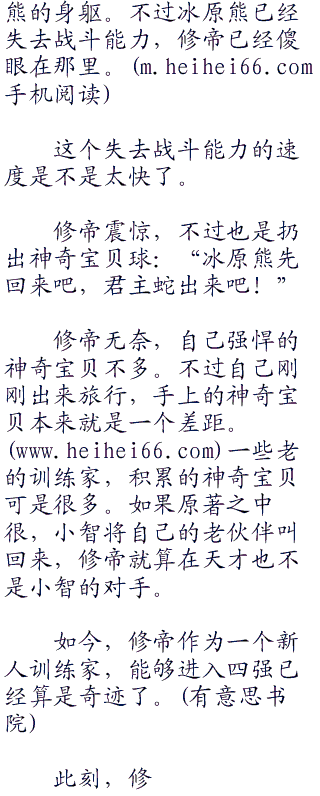 熊的身躯。不过冰原熊已经
失去战斗能力，修帝已经傻
眼在那里。(m.heihei66.com
手机阅读)
这个失去战斗能力的速
度是不是太快了。
修帝震惊，不过也是扔
出神奇宝贝球：“冰原熊先
回来吧，君主蛇出来吧！”
修帝无奈，自己强悍的
神奇宝贝不多。不过自己刚
刚出来旅行，手上的神奇宝
贝本来就是一个差距。
(www.heihei66.com)一些老
的训练家，积累的神奇宝贝
可是很多。如果原著之中
很，小智将自己的老伙伴叫
回来，修帝就算在天才也不
是小智的对手。
如今，修帝作为一个新
人训练家，能够进入四强已
经算是奇迹了。(有意思书
院)
此刻，修